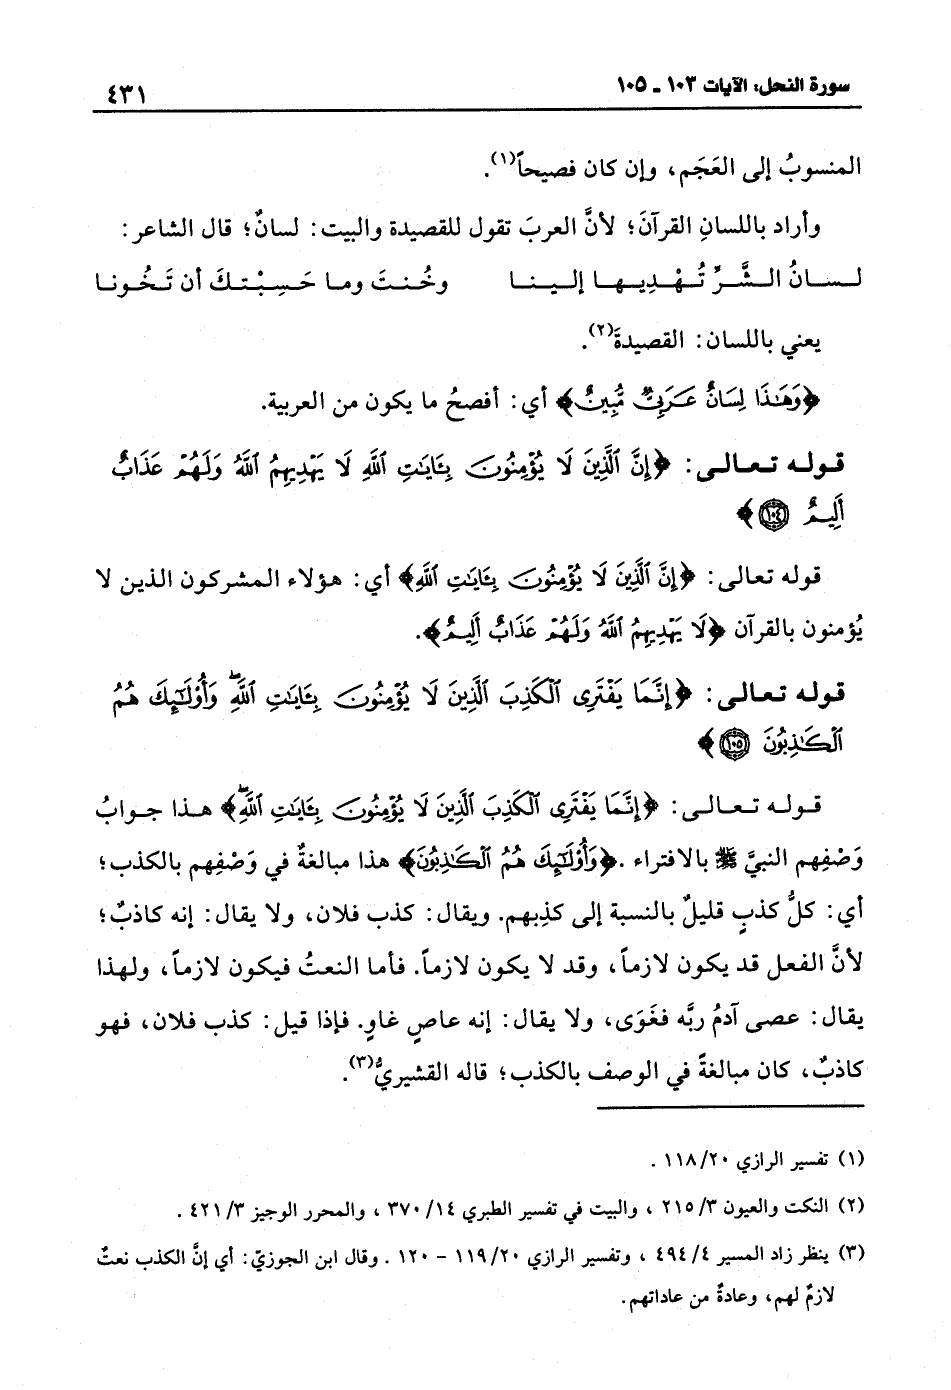 سورة النحل: الآيات ١٠٣ ـ ١٠٥ ٤٣١
المنسوبُ إلى العَجَم، وإن كان فصيحاً(١).
وأراد باللسانِ القرآنَ؛ لأنَّ العربَ تقول للقصيدة والبيت: لسانٌ؛ قال الشاعر:
لسانُ الشَّرِّ تُهْدِيها إلينا وخُنتَ وما حَسِبْتكَ أن تَخُونا
يعني باللسان: القصيدةَ(٢).
﴿وَهَٰذَا لِسَانٌ عَرَبِيٌّ مُّبِينٌ﴾ أي: أفصحُ ما يكون من العربية.
قوله تعالى: ﴿إِنَّ ٱلَّذِينَ لَا يُؤْمِنُونَ بِـَٔايَٰتِ ٱللَّهِ لَا يَهْدِيهِمُ ٱللَّهُ وَلَهُمْ عَذَابٌ
أَلِيمٌ ١٠٤﴾
قوله تعالى: ﴿إِنَّ ٱلَّذِينَ لَا يُؤْمِنُونَ بِـَٔايَٰتِ ٱللَّهِ﴾ أي: هؤلاء المشركون الذين لا
يُؤمنون بالقرآن ﴿لَا يَهْدِيهِمُ ٱللَّهُ وَلَهُمْ عَذَابٌ أَلِيمٌ﴾.
قوله تعالى: ﴿إِنَّمَا يَفْتَرِى ٱلْكَذِبَ ٱلَّذِينَ لَا يُؤْمِنُونَ بِـَٔايَٰتِ ٱللَّهِ ۖ وَأُو۟لَٰٓئِكَ هُمُ
ٱلْكَٰذِبُونَ ١٠٥﴾
قوله تعالى: ﴿إِنَّمَا يَفْتَرِى ٱلْكَذِبَ ٱلَّذِينَ لَا يُؤْمِنُونَ بِـَٔايَٰتِ ٱللَّهِ ۖ﴾ هذا جوابُ
وَصْفِهم النبيَّ ﷺ بالافتراء. ﴿وَأُو۟لَٰٓئِكَ هُمُ ٱلْكَٰذِبُونَ﴾ هذا مبالغةٌ في وَصْفِهم بالكذب؛
أي: كلُّ كذبٍ قليلٌ بالنسبة إلى كذِبهم. ويقال: كذب فلان، ولا يقال: إنه كاذبٌ؛
لأنَّ الفعل قد يكون لازماً، وقد لا يكون لازماً. فأما النعتُ فيكون لازماً، ولهذا
يقال: عصى آدمُ ربَّه فغَوَى، ولا يقال: إنه عاصٍ غاوٍ. فإذا قيل: كذب فلان، فهو
كاذبٌ، كان مبالغةً في الوصف بالكذب؛ قاله القشيريُّ(٣).
(١) تفسير الرازي ٢٠/ ١١٨ .
(٢) النكت والعيون ٣/ ٢١٥ ، والبيت في تفسير الطبري ١٤/ ٣٧٠ ، والمحرر الوجيز ٣/ ٤٢١ .
(٣) ينظر زاد المسير ٤/ ٤٩٤ ، وتفسير الرازي ٢٠/ ١١٩ - ١٢٠ . وقال ابن الجوزيّ: أي إنَّ الكذب نعتٌ
لازمٌ لهم، وعادةٌ من عاداتهم.